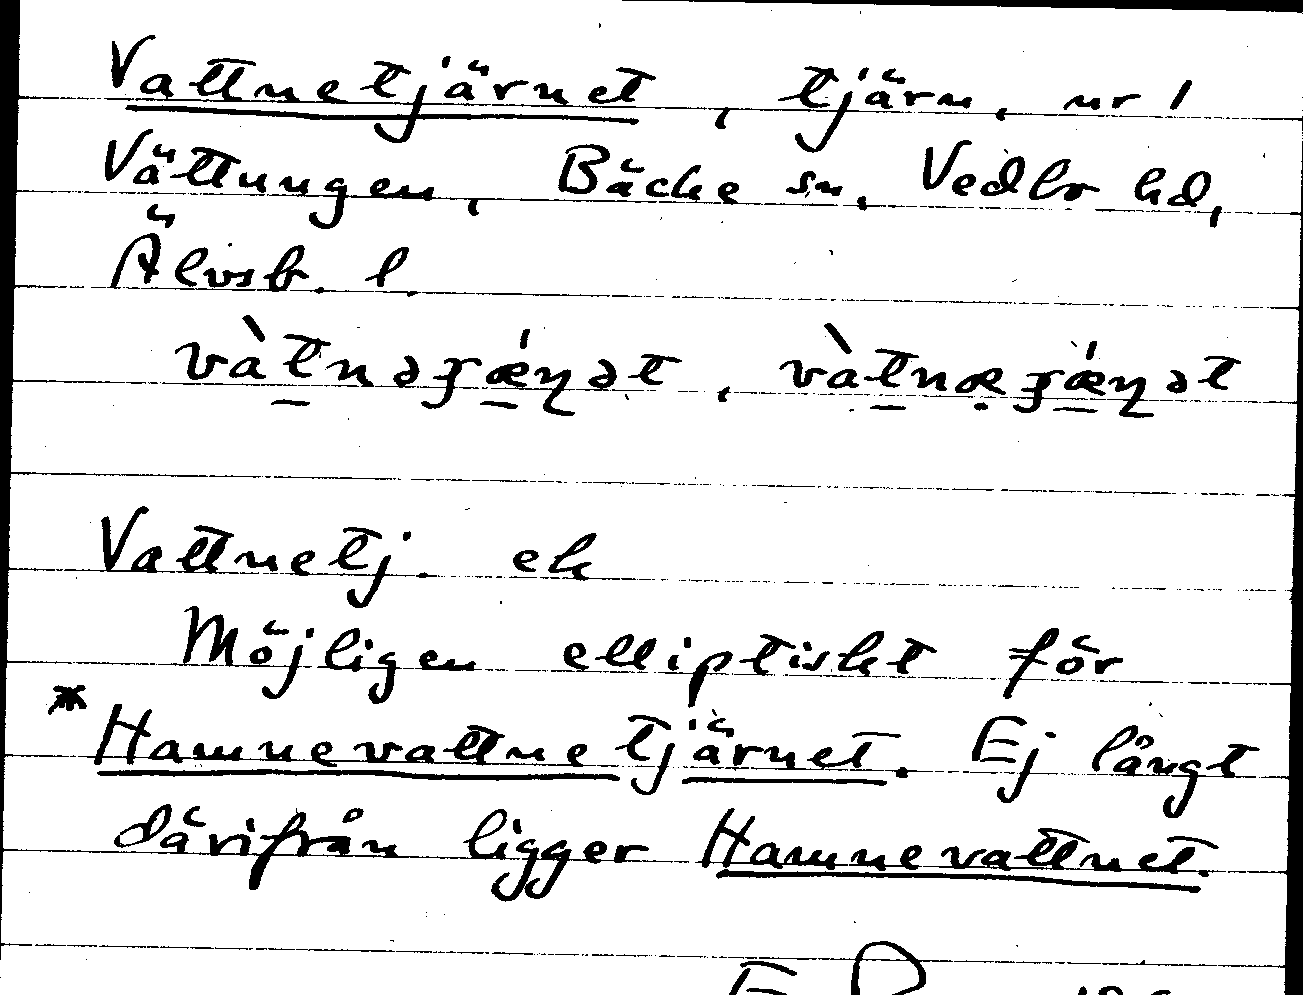 Vattnetjärnet, tjärn, nr 1
Vättungen, Bäcke sn, Vedbo hd,
Älvsb. l.
Vattnetj. ek
Möjligen elliptiskt för
*Hamnevattnetjärnet. Ej långt
därifrån ligger Hamnevattnet.